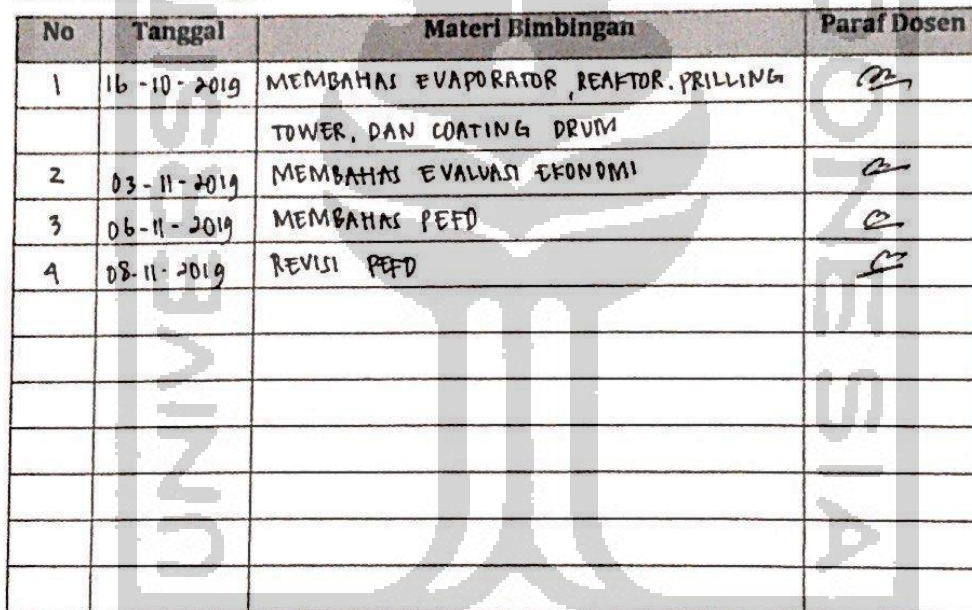 No Tanggal Materi Bimbingan Paraf Dosen
1 16-10-2019 MEMBAHAS EVAPORATOR, REAKTOR. PRILLING
TOWER, DAN COATING DRUM
2 03-11-2019 MEMBAHAS EVALUASI EKONOMI
3 06-11-2019 MEMBAHAS PEFD
4 08-11-2019 REVISI PEFD